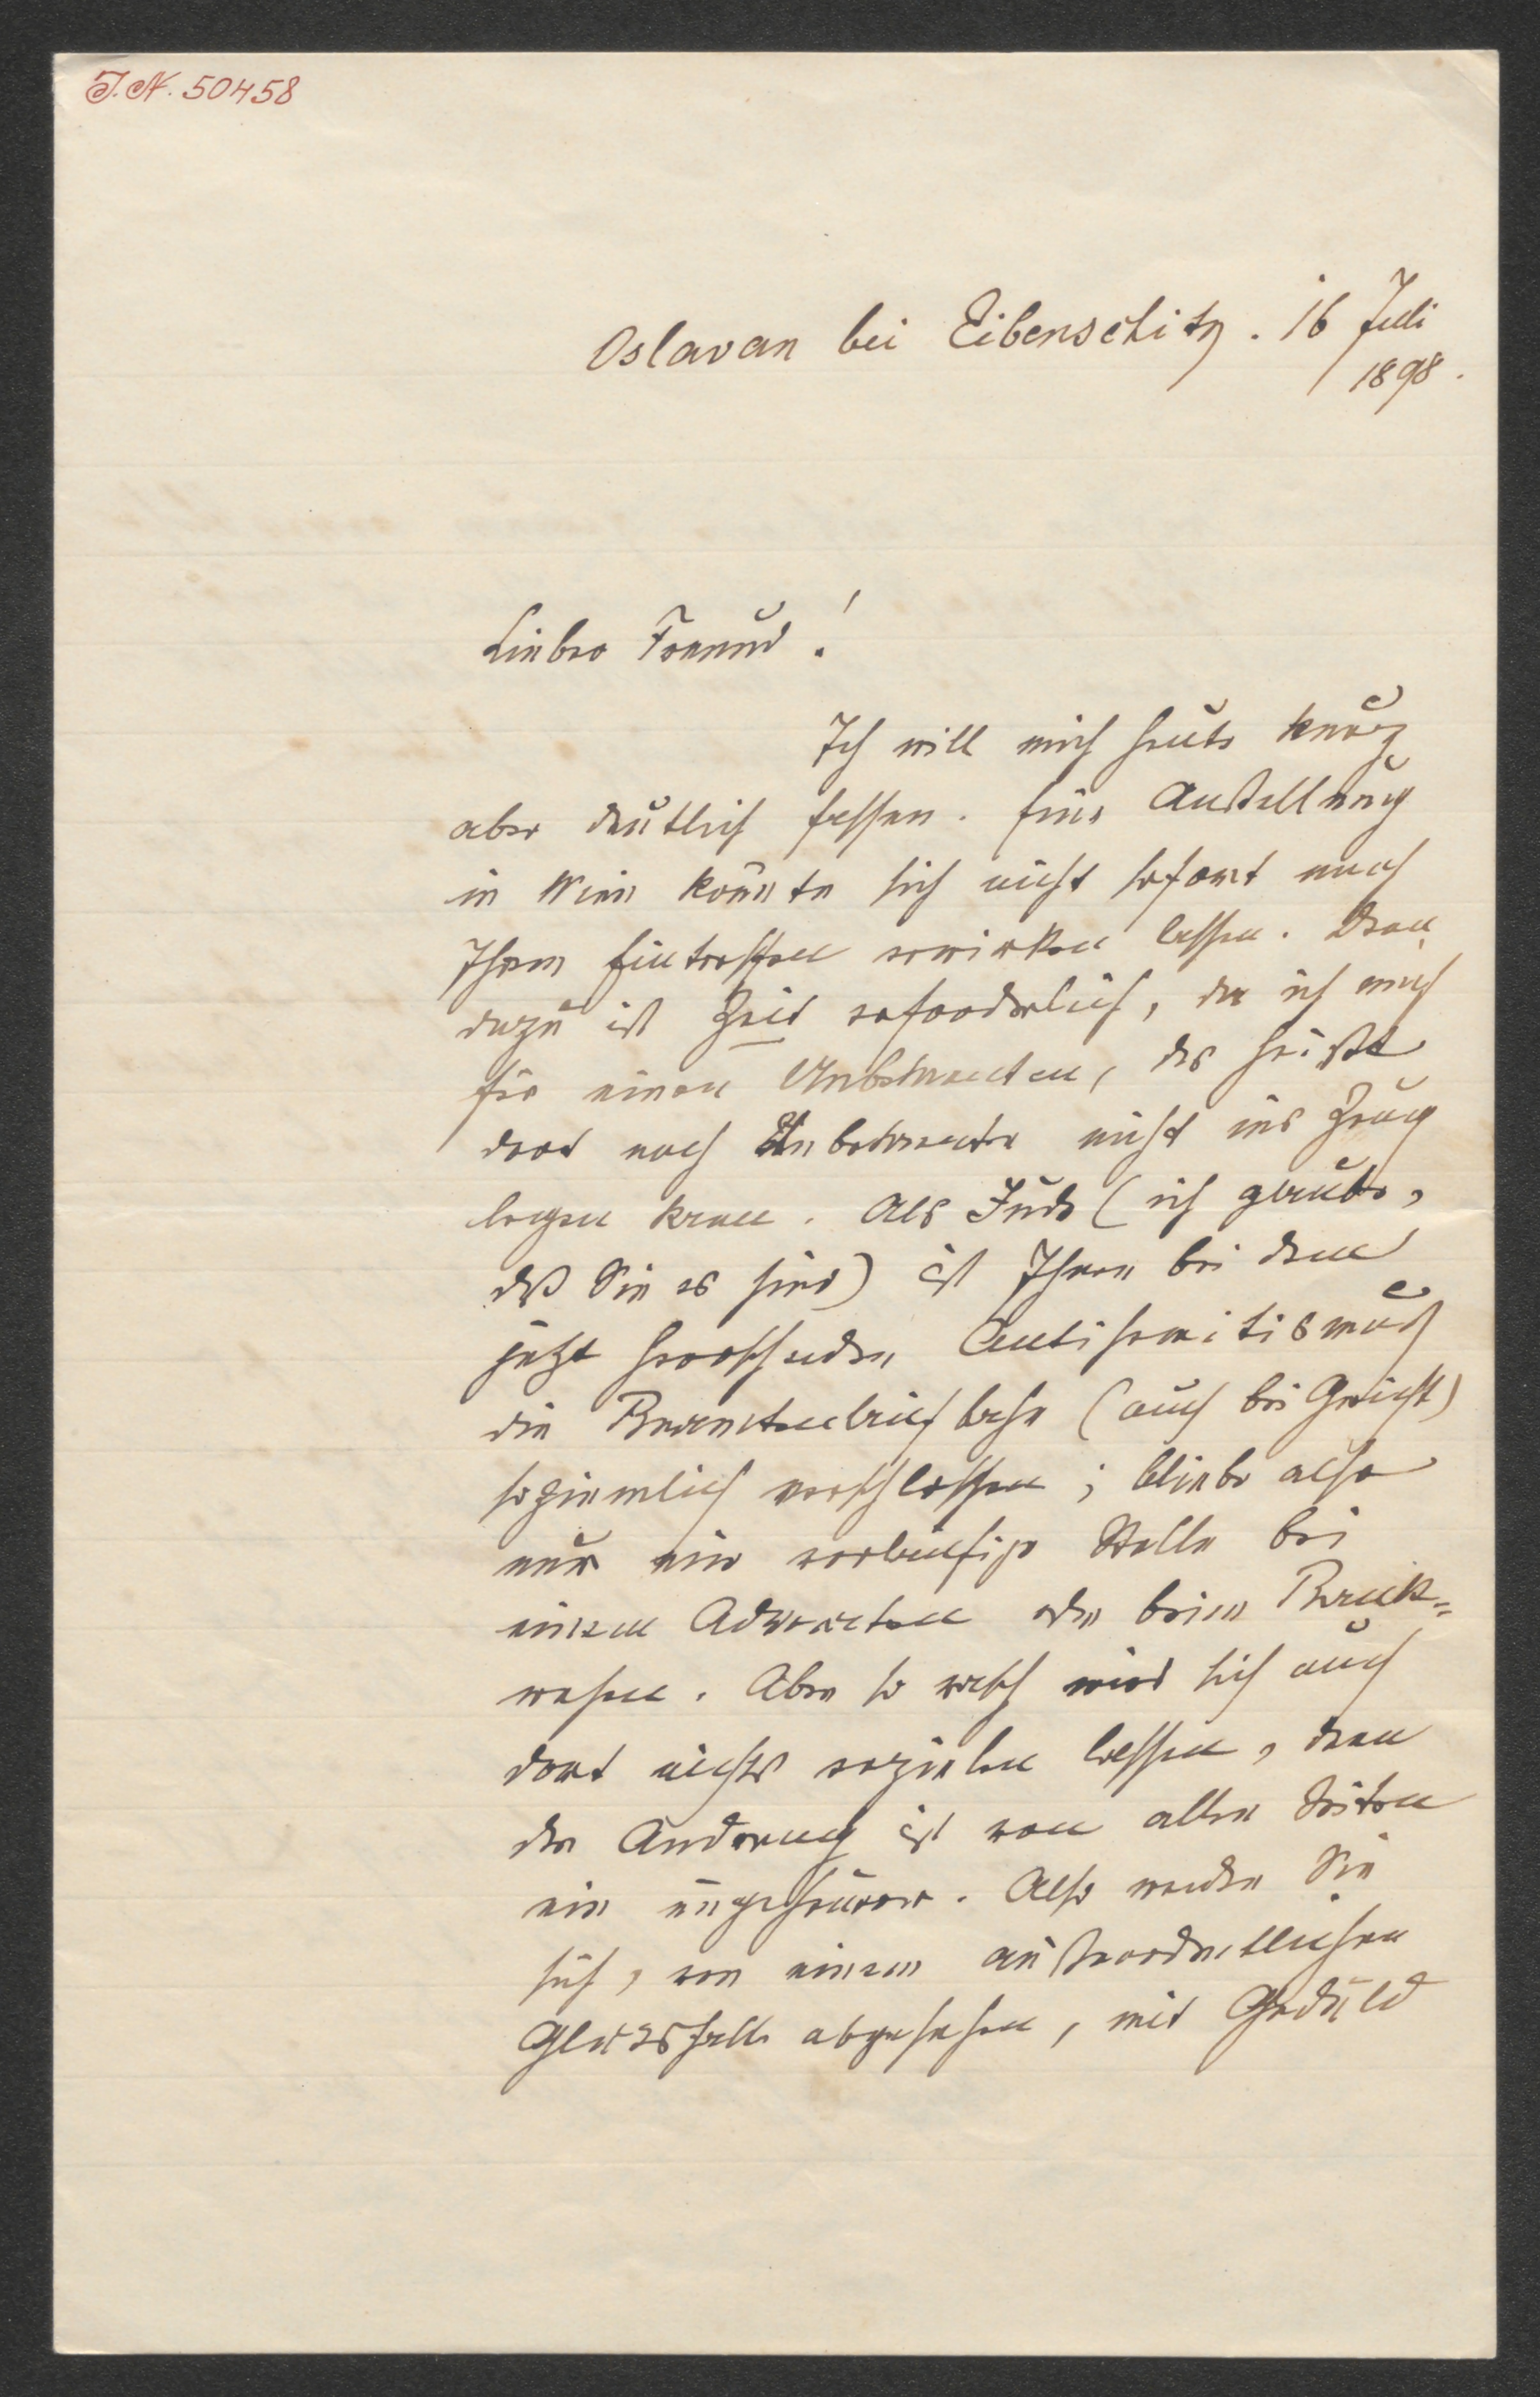 J.N. 50458
Oslavan bei Eibenschitz. 16 Juli
1898.
Lieber Freund!
Ich will mich heute kurz
aber deutlich fassen. Eine Anstellung
in Wien könnte sich nicht sofort nach
Ihrem Eintreffen erwirken lassen. Denn
dazu ist Zeit erforderlich, da ich mich
für einen Unbekannten, das heißt
dort noch Unbekannten nicht ins Zeug
legen kann. Als Jude (ich glaube,
daß Sie es sind) ist Ihnen bei dem
jetzt herrschenden Antisemitismus
die Beamtenlaufbahn (auch bei Gericht)
so ziemlich verschlossen; bliebe also
nur eine vorläufige Stelle bei
einem Advocaten oder beim Bank-
wesen. Aber so rasch wird sich auch
dort nichts erzielen lassen, denn
der Andrang ist von allen Seiten
ein ungeheurer. Also werden Sie
sich, von einem außerordentlichen
Glücksfalle abgesehen, mit Geduld